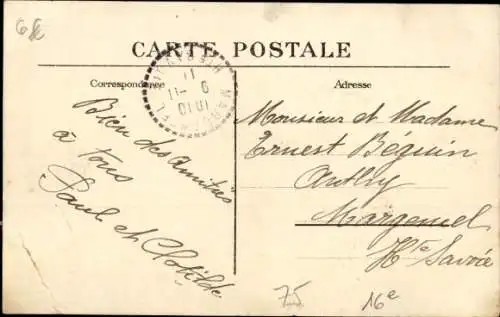 CARTE POSTALE
Correspondance
Adresse
11
9 - 11
1910
Bien des amitiés
à tous
Paul et Clotilde
Monsieur et Madame
Ernest Béguin
Anthy
Margencel
Hte Savoie
75
16e